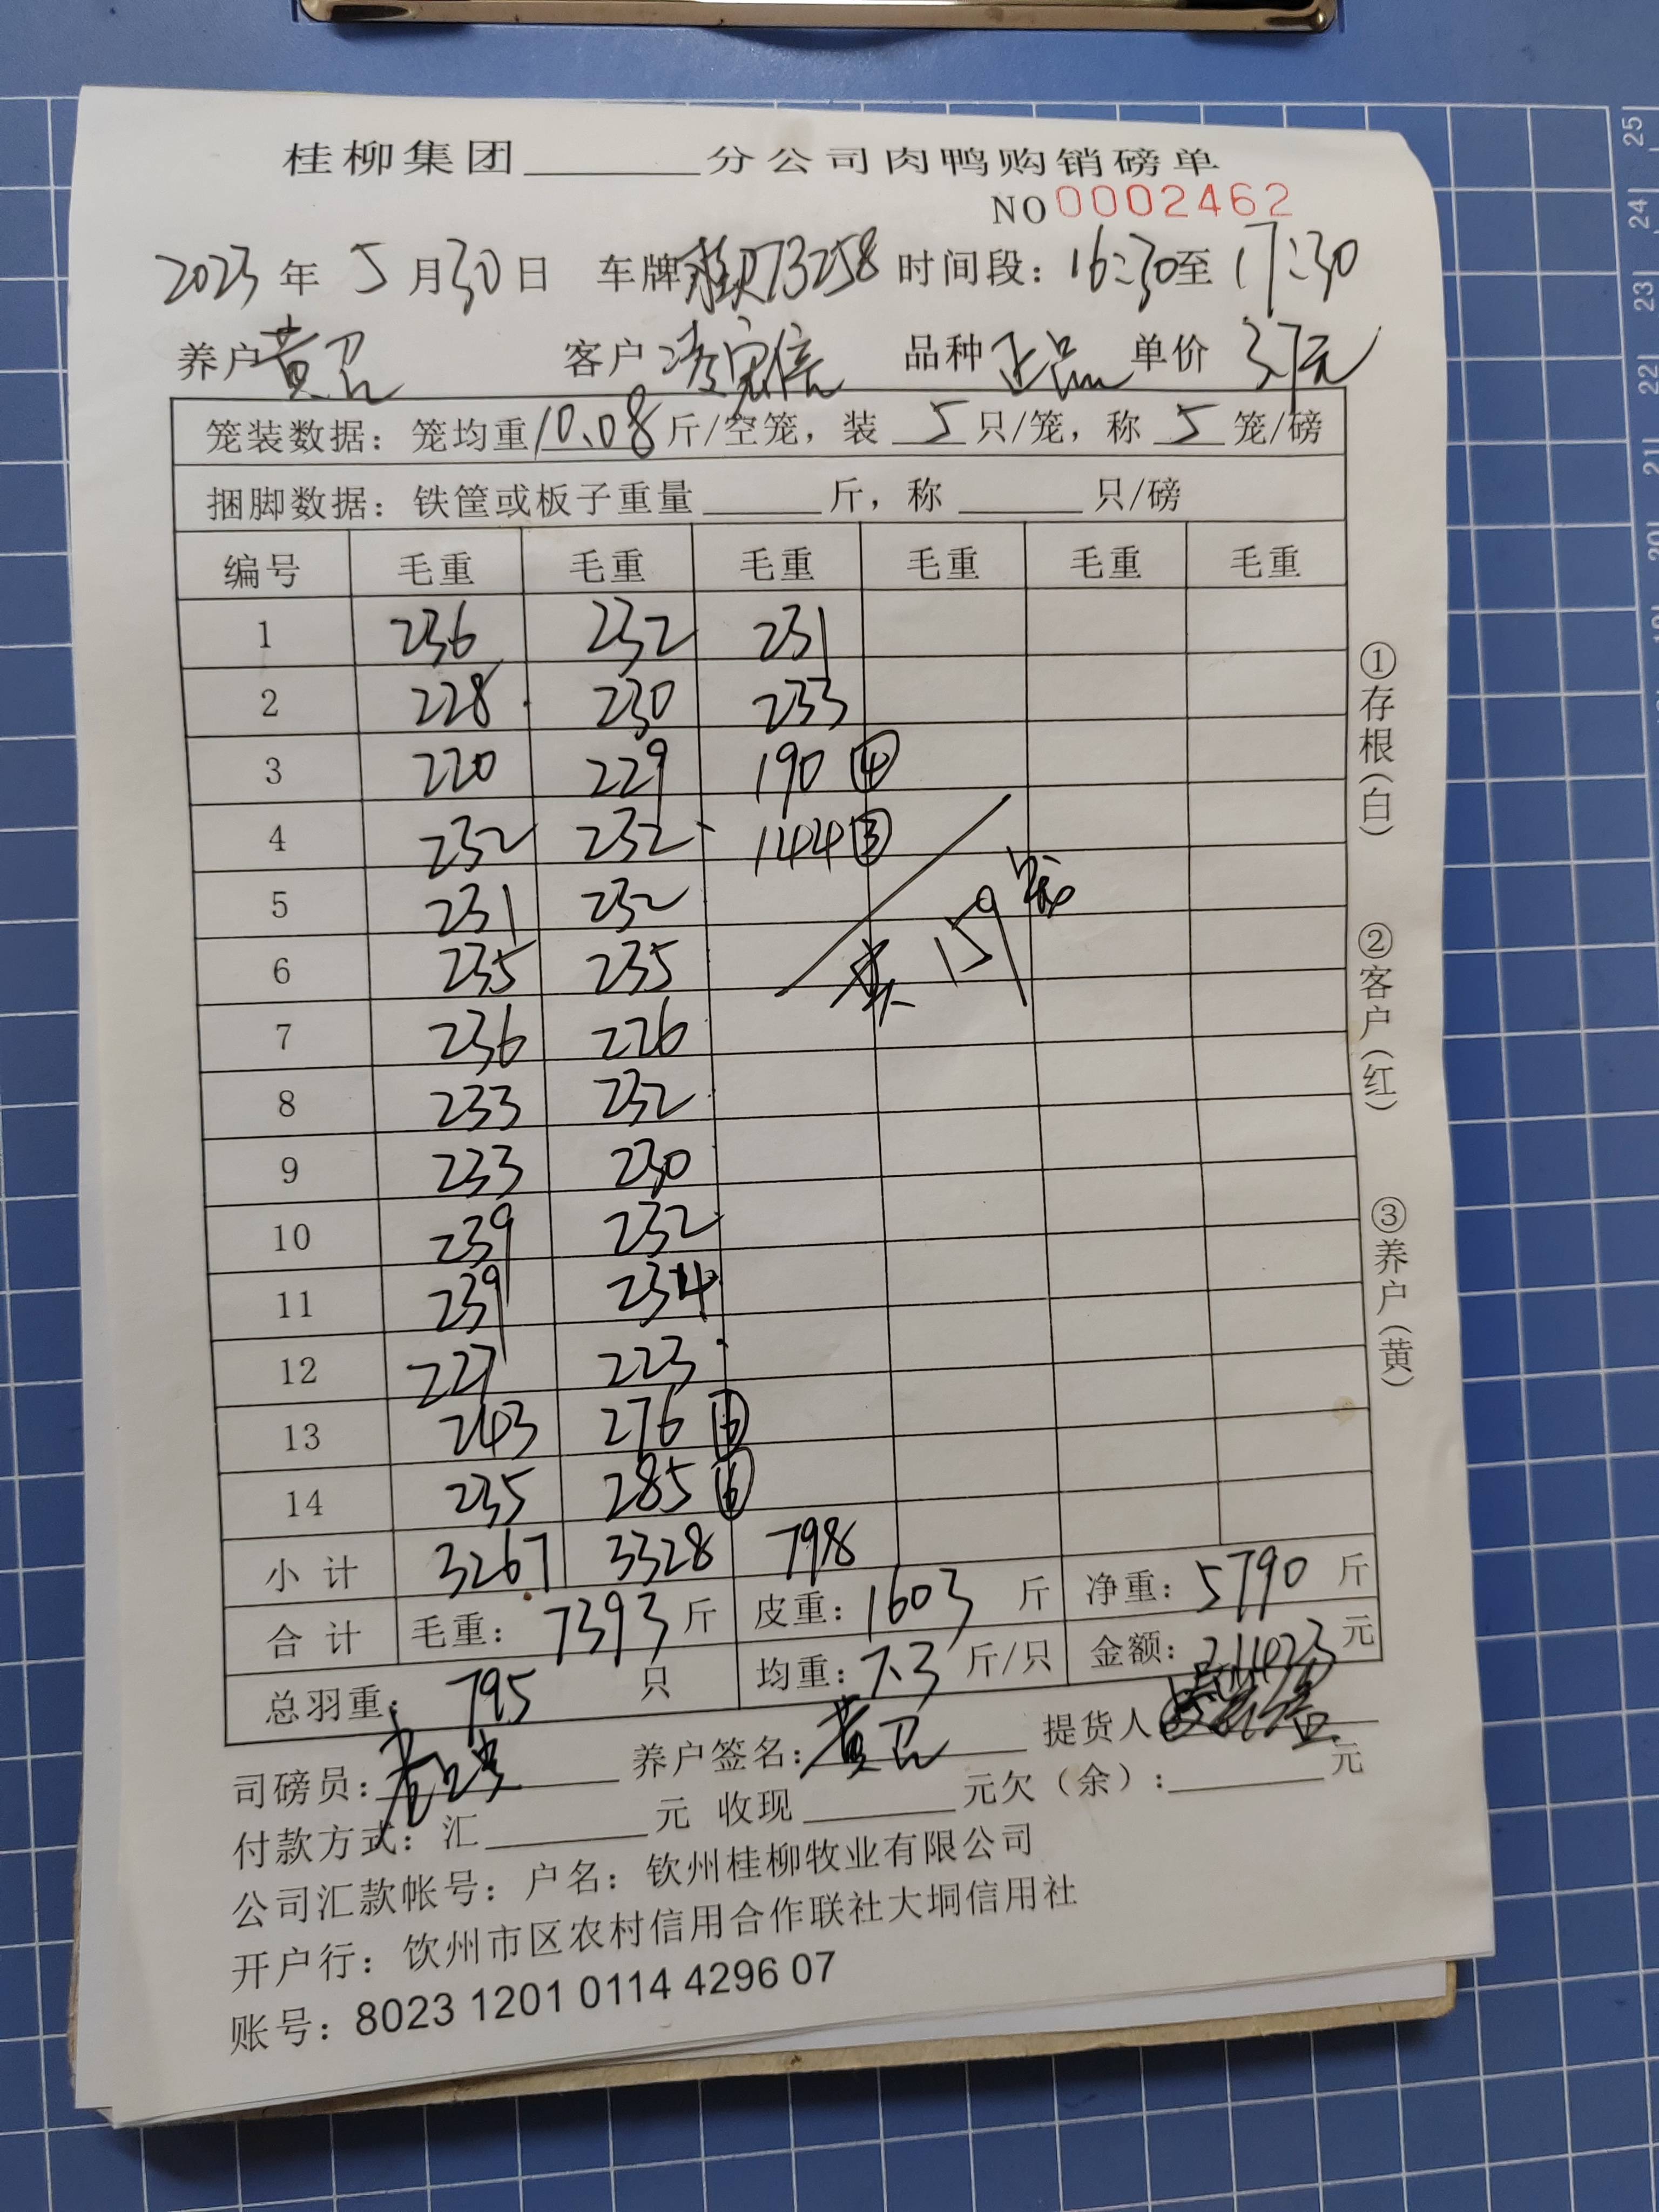 桂柳集团______分公司肉鸭购销磅单
NO 0002462
2023年 5月30日 车牌 桂 73258 时间段：16:30至17:30
养户 黄 客户 品种 正品 单价 3.7元
笼装数据：笼均重10.08斤/空笼，装 5 只/笼，称 5 笼/磅
捆脚数据：铁筐或板子重量______斤，称______只/磅
编号 毛重 毛重 毛重 毛重 毛重 毛重
1 236 232 231
2 228 230 233
3 220 229 190 ④
4 232 232 144 ③
5 231 232
6 235 235
7 236 226
8 233 232
9 233 230
10 239 232
11 239 234
12 227 223
13 243 276 ⑥
14 235 285 ⑥
共159笼
小计 3267 3328 798
合计 毛重：7393斤 皮重：1603斤 净重：5790斤
总羽重：795只 均重：7.3斤/只 金额： 元
司磅员： 养户签名：黄 提货人
付款方式：汇______元 收现______元欠（余）：______元
公司汇款帐号：户名：钦州桂柳牧业有限公司
开户行：钦州市区农村信用合作联社大垌信用社
账号：8023 1201 0114 4296 07
①存根（白）
②客户（红）
③养户（黄）
25
24
23
22
21
20